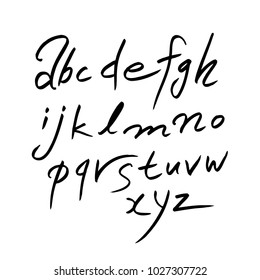 abcdefgh
ijklmno
pqrstuvw
xyz
shutterstock.com · 1027307722